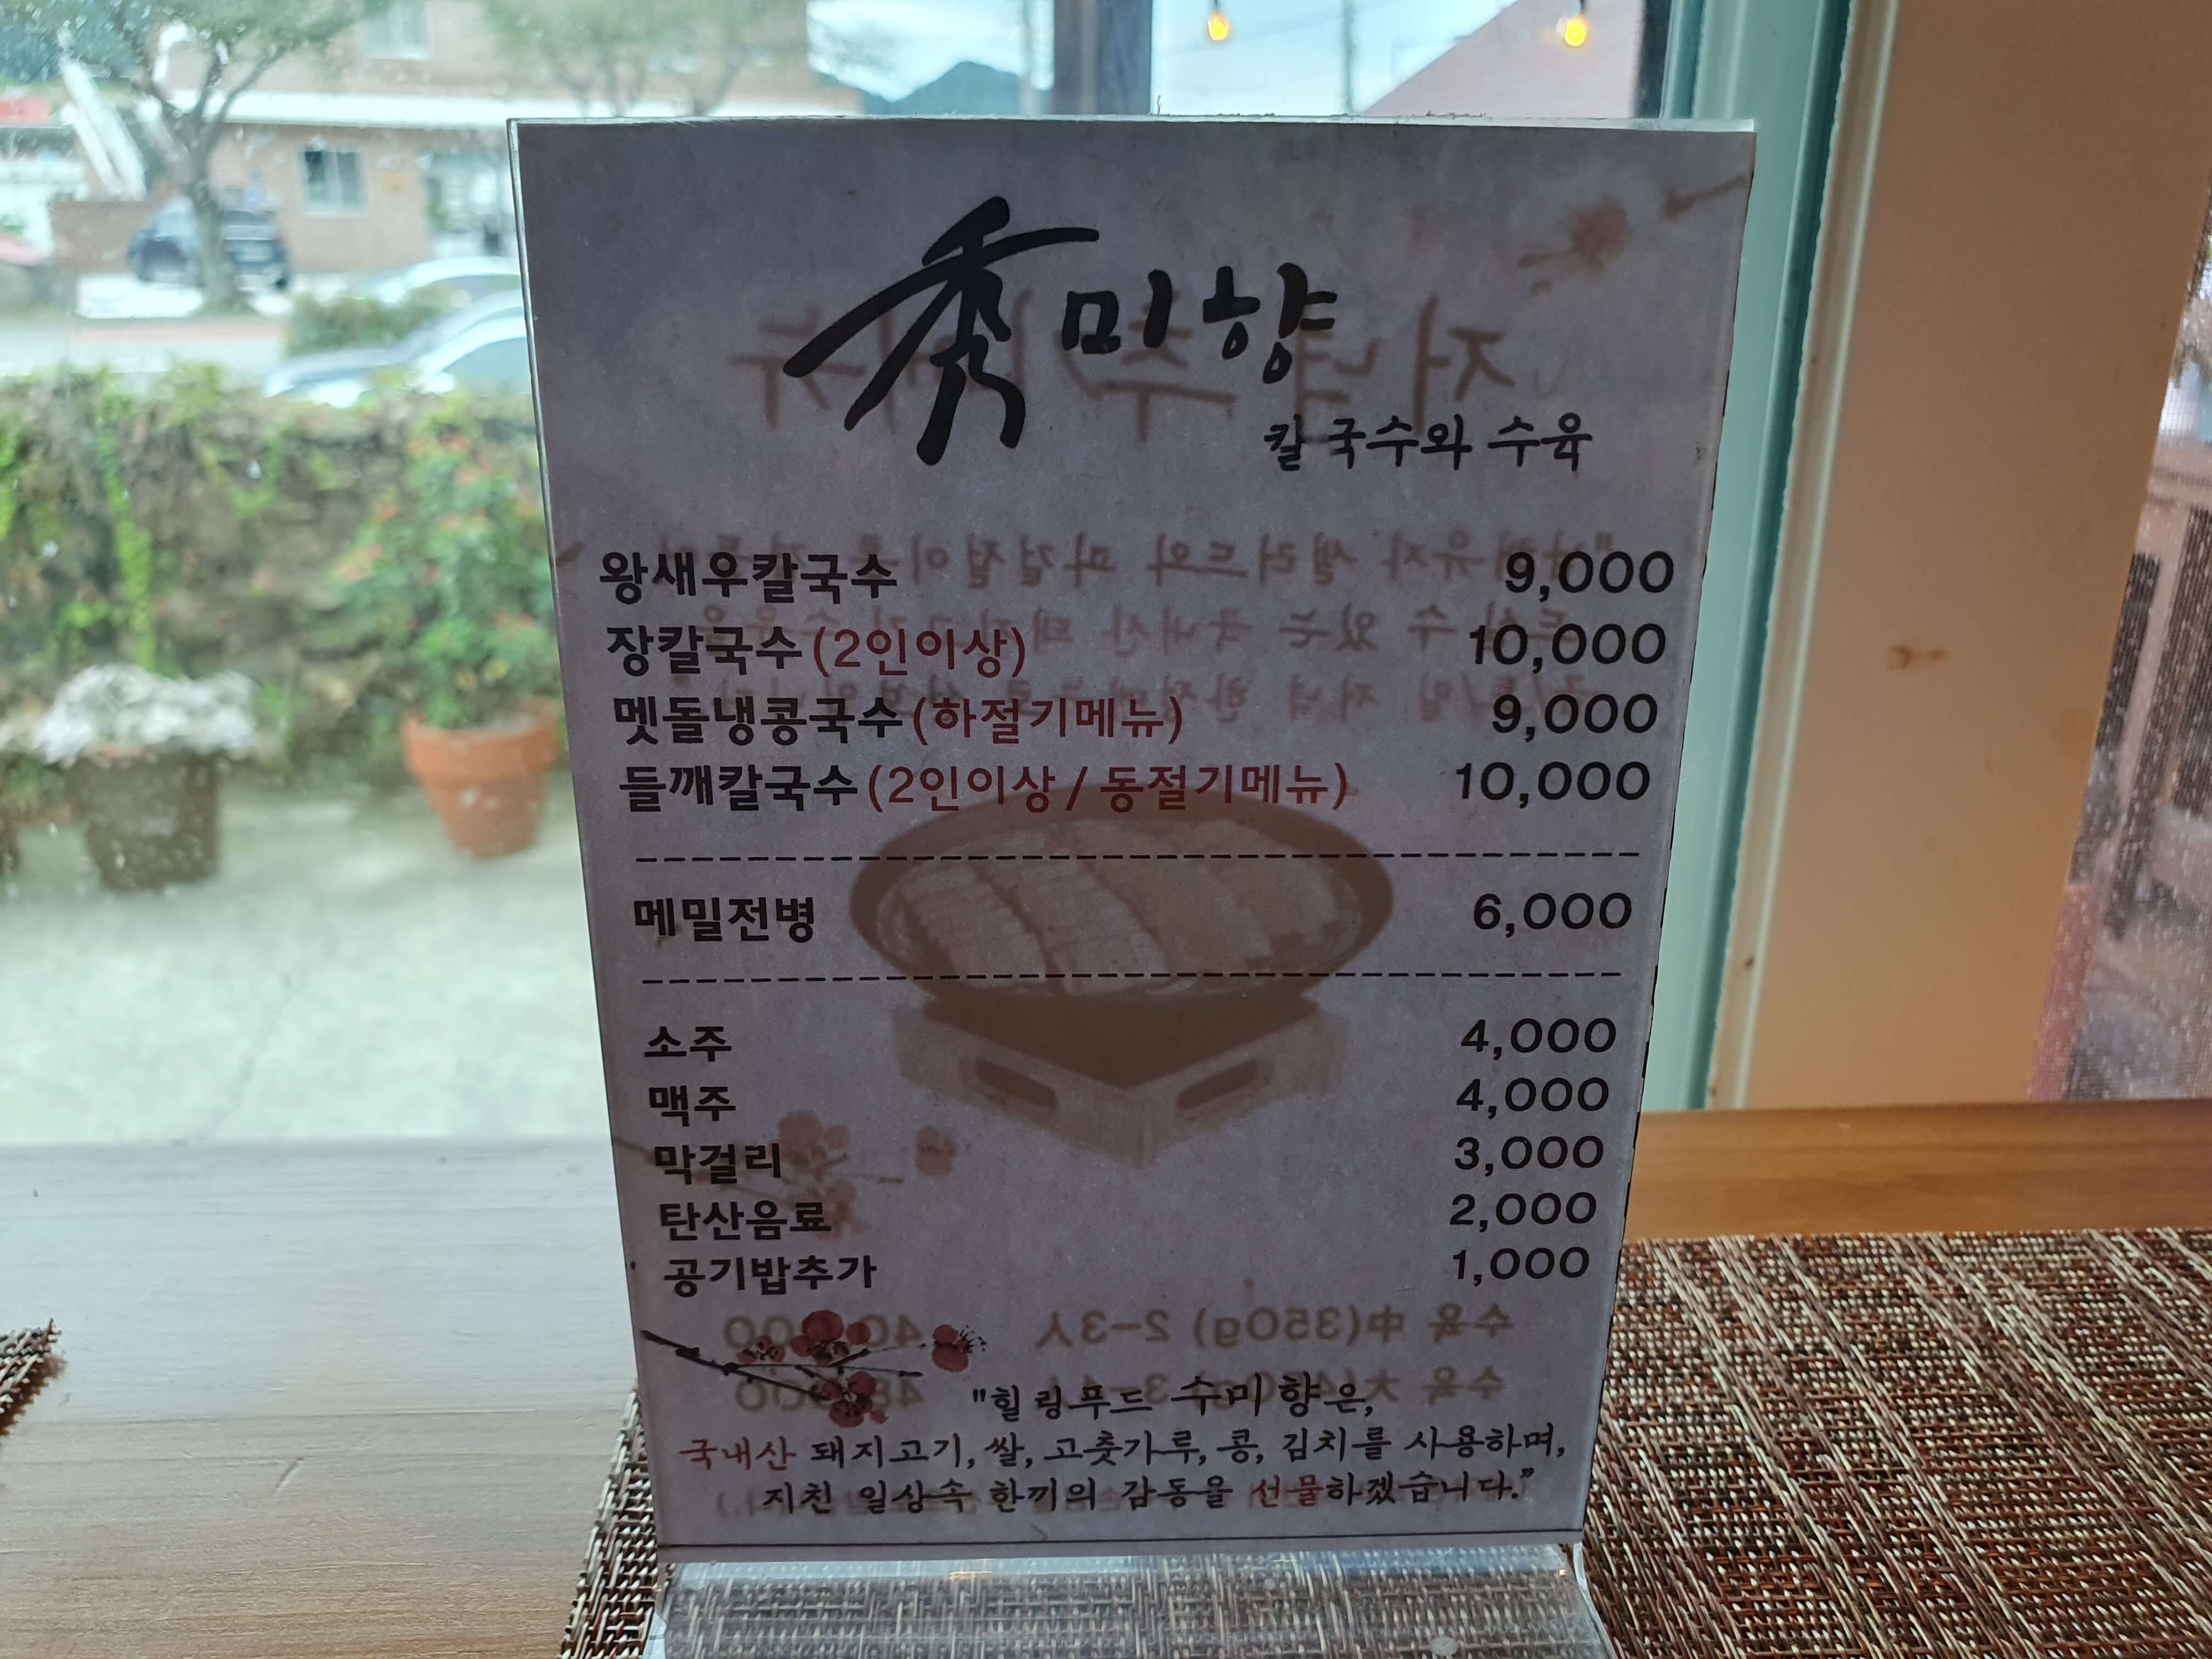 秀미향
칼국수와 수육
왕새우칼국수 9,000
장칼국수(2인이상) 10,000
멧돌냉콩국수(하절기메뉴) 9,000
들깨칼국수(2인이상 / 동절기메뉴) 10,000
메밀전병 6,000
소주 4,000
맥주 4,000
막걸리 3,000
탄산음료 2,000
공기밥추가 1,000
"힐링푸드 수미향은,
국내산 돼지고기, 쌀, 고춧가루, 콩, 김치를 사용하며,
지친 일상속 한끼의 감동을 선물하겠습니다."